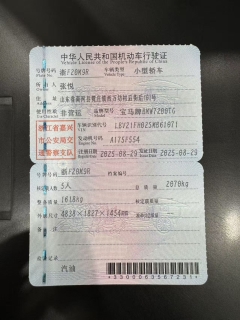 中华人民共和国机动车行驶证
Vehicle License of the People's Republic of China
号牌号码 浙FZ0K9R 车辆类型 小型轿车
Plate No. Vehicle Type
所有人 张悦
Owner
住址
Address
使用性质 非营运 品牌型号 宝马牌BMW7200TG
Use Character Model
浙江省嘉兴
市公安局交
通警察支队
车辆识别代号
VIN
发动机号码
Engine No.
注册日期 2025-08-29 发证日期 2025-08-29
Register Date Issue Date
号牌号码 浙FZ0K9R 档案编号
核定载人数 5人 总质量 2070kg
整备质量 1618kg 核定载质量
外廓尺寸
检验记录
汽油